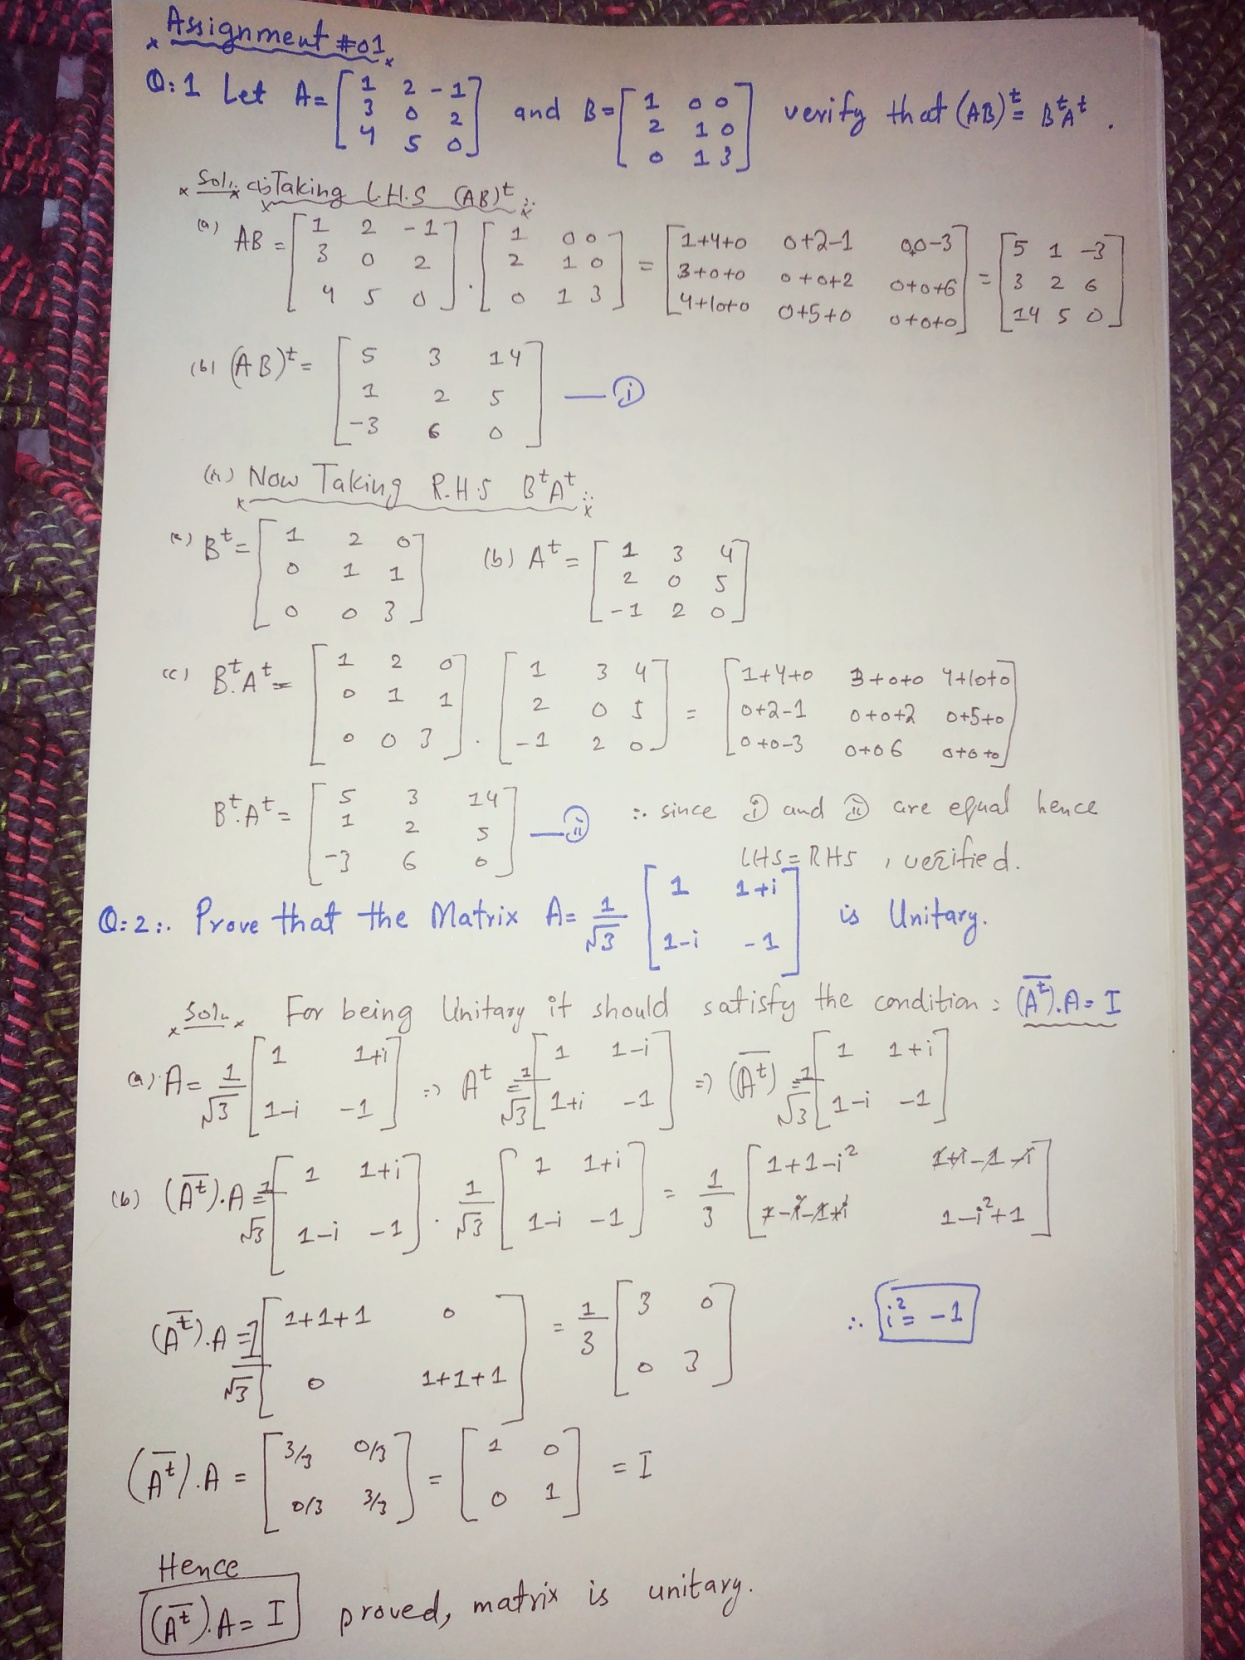 Assignment #01
Q:1 Let A= [1 2 -1; 3 0 2; 4 5 0] and B= [1 0 0; 2 1 0; 0 1 3] verify that (AB)^t = B^tA^t.
Sol: (i) Taking L.H.S (AB)^t :-
(a) AB = [1 2 -1; 3 0 2; 4 5 0] . [1 0 0; 2 1 0; 0 1 3] = [1+4+0 0+2-1 0,0-3; 3+0+0 0+0+2 0+0+6; 4+10+0 0+5+0 0+0+0] = [5 1 -3; 3 2 6; 14 5 0]
(b) (AB)^t = [5 3 14; 1 2 5; -3 6 0] — (i)
(ii) Now Taking R.H.S B^tA^t :-
(a) B^t = [1 2 0; 0 1 1; 0 0 3] (b) A^t = [1 3 4; 2 0 5; -1 2 0]
(c) B^t.A^t = [1 2 0; 0 1 1; 0 0 3] . [1 3 4; 2 0 5; -1 2 0] = [1+4+0 3+0+0 4+10+0; 0+2-1 0+0+2 0+5+0; 0+0-3 0+06 0+0+0]
B^t.A^t = [5 3 14; 1 2 5; -3 6 0] — (ii) ∴ since (i) and (ii) are equal hence
LHS=RHS, verified.
Q:2:. Prove that the Matrix A= 1/√3 [1 1+i; 1-i -1] is Unitary.
Soln. For being Unitary it should satisfy the condition: (A̅^t̅).A= I
(a) A= 1/√3 [1 1+i; 1-i -1] => A^t = 1/√3 [1 1-i; 1+i -1] => (A̅^t̅) = 1/√3 [1 1+i; 1-i -1]
(b) (A̅^t̅).A = 1/√3 [1 1+i; 1-i -1] . 1/√3 [1 1+i; 1-i -1] = 1/3 [1+1-i² 1+i-1-i; 1-i-1+i 1-i²+1]
(A̅^t̅).A = 1/√3 [1+1+1 0; 0 1+1+1] = 1/3 [3 0; 0 3] ∴ i²= -1
(A̅^t̅).A = [3/3 0/3; 0/3 3/3] = [1 0; 0 1] = I
Hence
(A̅^t̅).A= I proved, matrix is unitary.